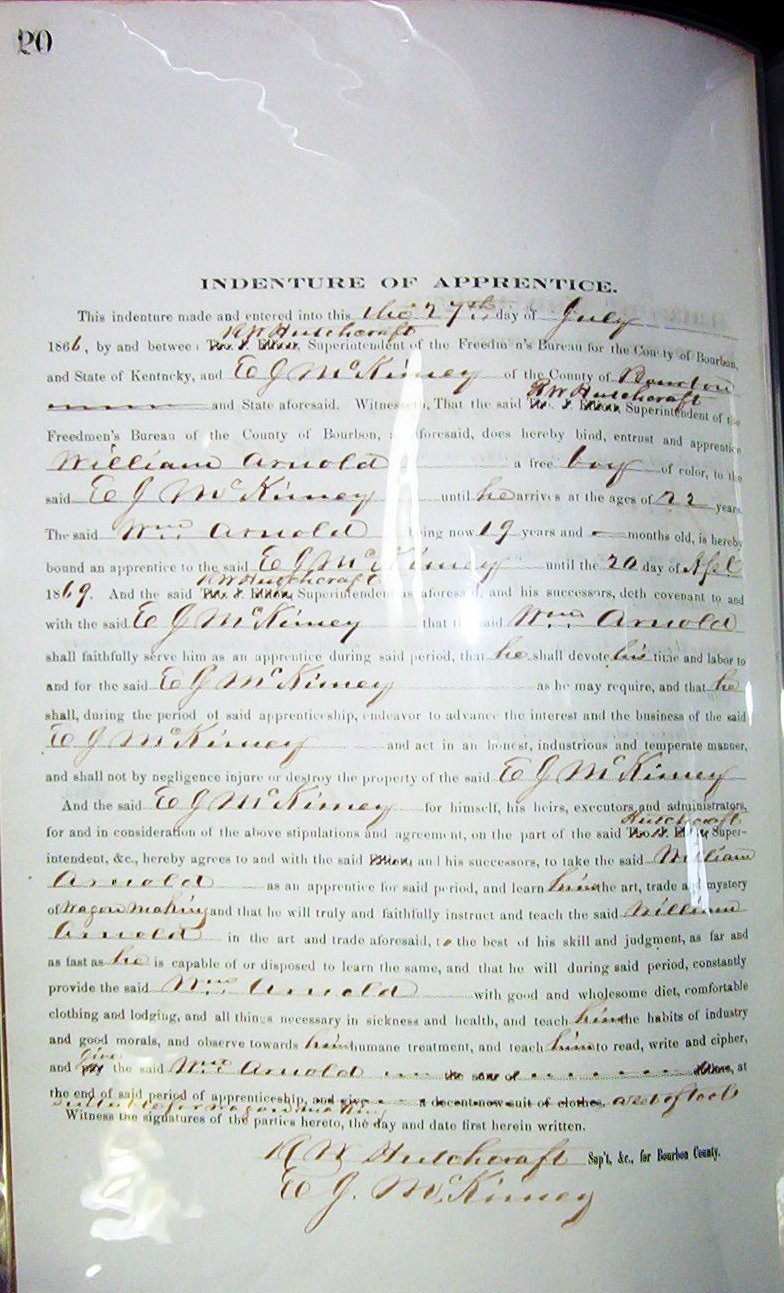 20
INDENTURE OF APPRENTICE.
This indenture made and entered into this the 27th day of July
R W Hutchcraft
1866, by and betwee Superintendent of the Freedm n's Bureau for the County of Bourbon,
and State of Kentucky, and E J McKinney of the County of Bourbon
R W Hutchcraft
and State aforesaid. Witnesseth, That the said Superintendent of the
Freedmen's Bureau of the County of Bourbon, aforesaid, does hereby bind, entrust and apprentice
William Arnold a free boy of color, to the
said E J McKinney until he arrives at the ages of 22 years
The said Wm Arnold being now 19 years and — months old, is hereby
bound an apprentice to the said E J McKinney until the 20 day of Apl
R W Hutchcraft
1869. And the said Superintendent as aforesaid, and his successors, doth covenant to and
with the said E J McKinney that the said Wm Arnold
shall faithfully serve him as an apprentice during said period, that he shall devote his time and labor to
and for the said E J McKinney as he may require, and that he
shall, during the period of said apprenticeship, endeavor to advance the interest and the business of the said
E J McKinney and act in an honest, industrious and temperate manner,
and shall not by negligence injure or destroy the property of the said E J McKinney
And the said E J McKinney for himself, his heirs, executors and administrators,
Hutchcraft
for and in consideration of the above stipulations and agreement, on the part of the said Super-
intendent, &c., hereby agrees to and with the said and his successors, to take the said William
Arnold as an apprentice for said period, and learn him the art, trade and mystery
of Wagon making and that he will truly and faithfully instruct and teach the said William
Arnold in the art and trade aforesaid, to the best of his skill and judgment, as far and
as fast as he is capable of or disposed to learn the same, and that he will during said period, constantly
provide the said Wm Arnold with good and wholesome diet, comfortable
clothing and lodging, and all things necessary in sickness and health, and teach him the habits of industry
and good morals, and observe towards him humane treatment, and teach him to read, write and cipher,
give
and pay the said Wm Arnold the sum of dollars, at
the end of said period of apprenticeship, and give a decent new suit of clothes, a set of tools
suitable for wagon making
Witness the signatures of the parties hereto, the day and date first herein written.
R W Hutchcraft Sup't, &c., for Bourbon County.
E J. McKinney